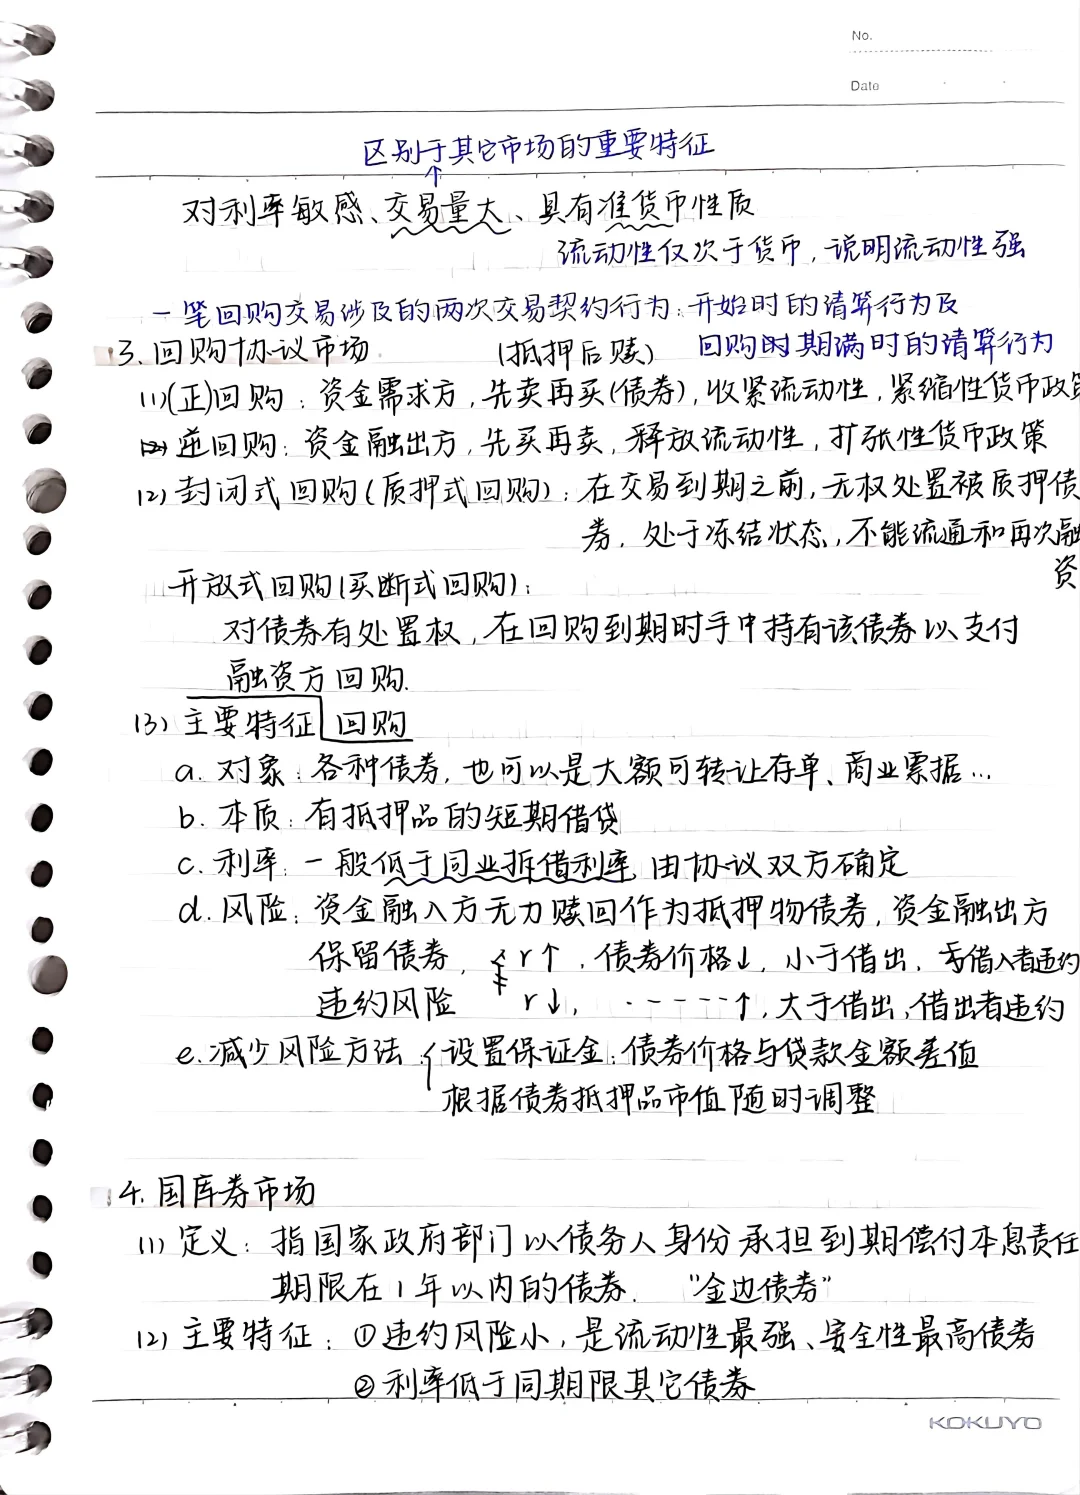 No.
Date
区别于其它市场的重要特征
↑
对利率敏感、交易量大、具有准货币性质
流动性仅次于货币，说明流动性强
一笔回购交易涉及的两次交易契约行为：开始时的清算行为及
3. 回购协议市场 (抵押后赎) 回购时期满时的清算行为
(1)(正)回购：资金需求方，先卖再买(债券)，收紧流动性，紧缩性货币政策
逆回购：资金融出方，先买再卖，释放流动性，扩张性货币政策
(2) 封闭式回购(质押式回购)：在交易到期之前，无权处置被质押债
券，处于冻结状态，不能流通和再次融
资
开放式回购(买断式回购)：
对债券有处置权，在回购到期时手中持有该债券以支付
融资方回购.
(3) 主要特征 回购
a. 对象：各种债券，也可以是大额可转让存单、商业票据…
b. 本质：有抵押品的短期借贷
c. 利率：一般低于同业拆借利率，由协议双方确定
d. 风险：资金融入方无力赎回作为抵押物债券，资金融出方
保留债券， r↑，债券价格↓，小于借出，借入者违约
违约风险 r↓，-----↑，大于借出，借出者违约
e. 减少风险方法：设置保证金：债券价格与贷款金额差值
根据债券抵押品市值随时调整
4. 国库券市场
(1) 定义：指国家政府部门以债务人身份承担到期偿付本息责任
期限在1年以内的债券. “金边债券”
(2) 主要特征：①违约风险小，是流动性最强、安全性最高债券
②利率低于同期限其它债券
KOKUYO